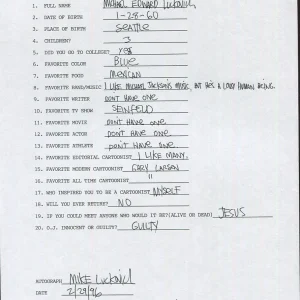 1. FULL NAME MICHAEL EDWARD LUCKOVICH
2. DATE OF BIRTH 1-28-60
3. PLACE OF BIRTH SEATTLE
4. CHILDREN? 3
5. DID YOU GO TO COLLEGE? yes
6. FAVORITE COLOR BLUE
7. FAVORITE FOOD MEXICAN
8. FAVORITE BAND/MUSIC I LIKE MICHAEL JACKSON'S MUSIC, BUT HE'S A LOUSY HUMAN BEING.
9. FAVORITE WRITER DON'T HAVE ONE
10. FAVORITE TV SHOW SEINFELD
11. FAVORITE MOVIE DON'T HAVE ONE
12. FAVORITE ACTOR DON'T HAVE ONE
13. FAVORITE ATHLETE DON'T HAVE ONE
14. FAVORITE EDITORIAL CARTOONIST I LIKE MANY.
15. FAVORITE MODERN CARTOONIST GARY LARSON
16. FAVORITE ALL TIME CARTOONIST "
17. WHO INSPIRED YOU TO BE A CARTOONIST MYSELF
18. WILL YOU EVER RETIRE? NO
19. IF YOU COULD MEET ANYONE WHO WOULD IT BE?(ALIVE OR DEAD) JESUS
20. O.J. INNOCENT OR GUILTY? GUILTY
AUTOGRAPH MIKE LUCKOVICH
DATE 2/29/96